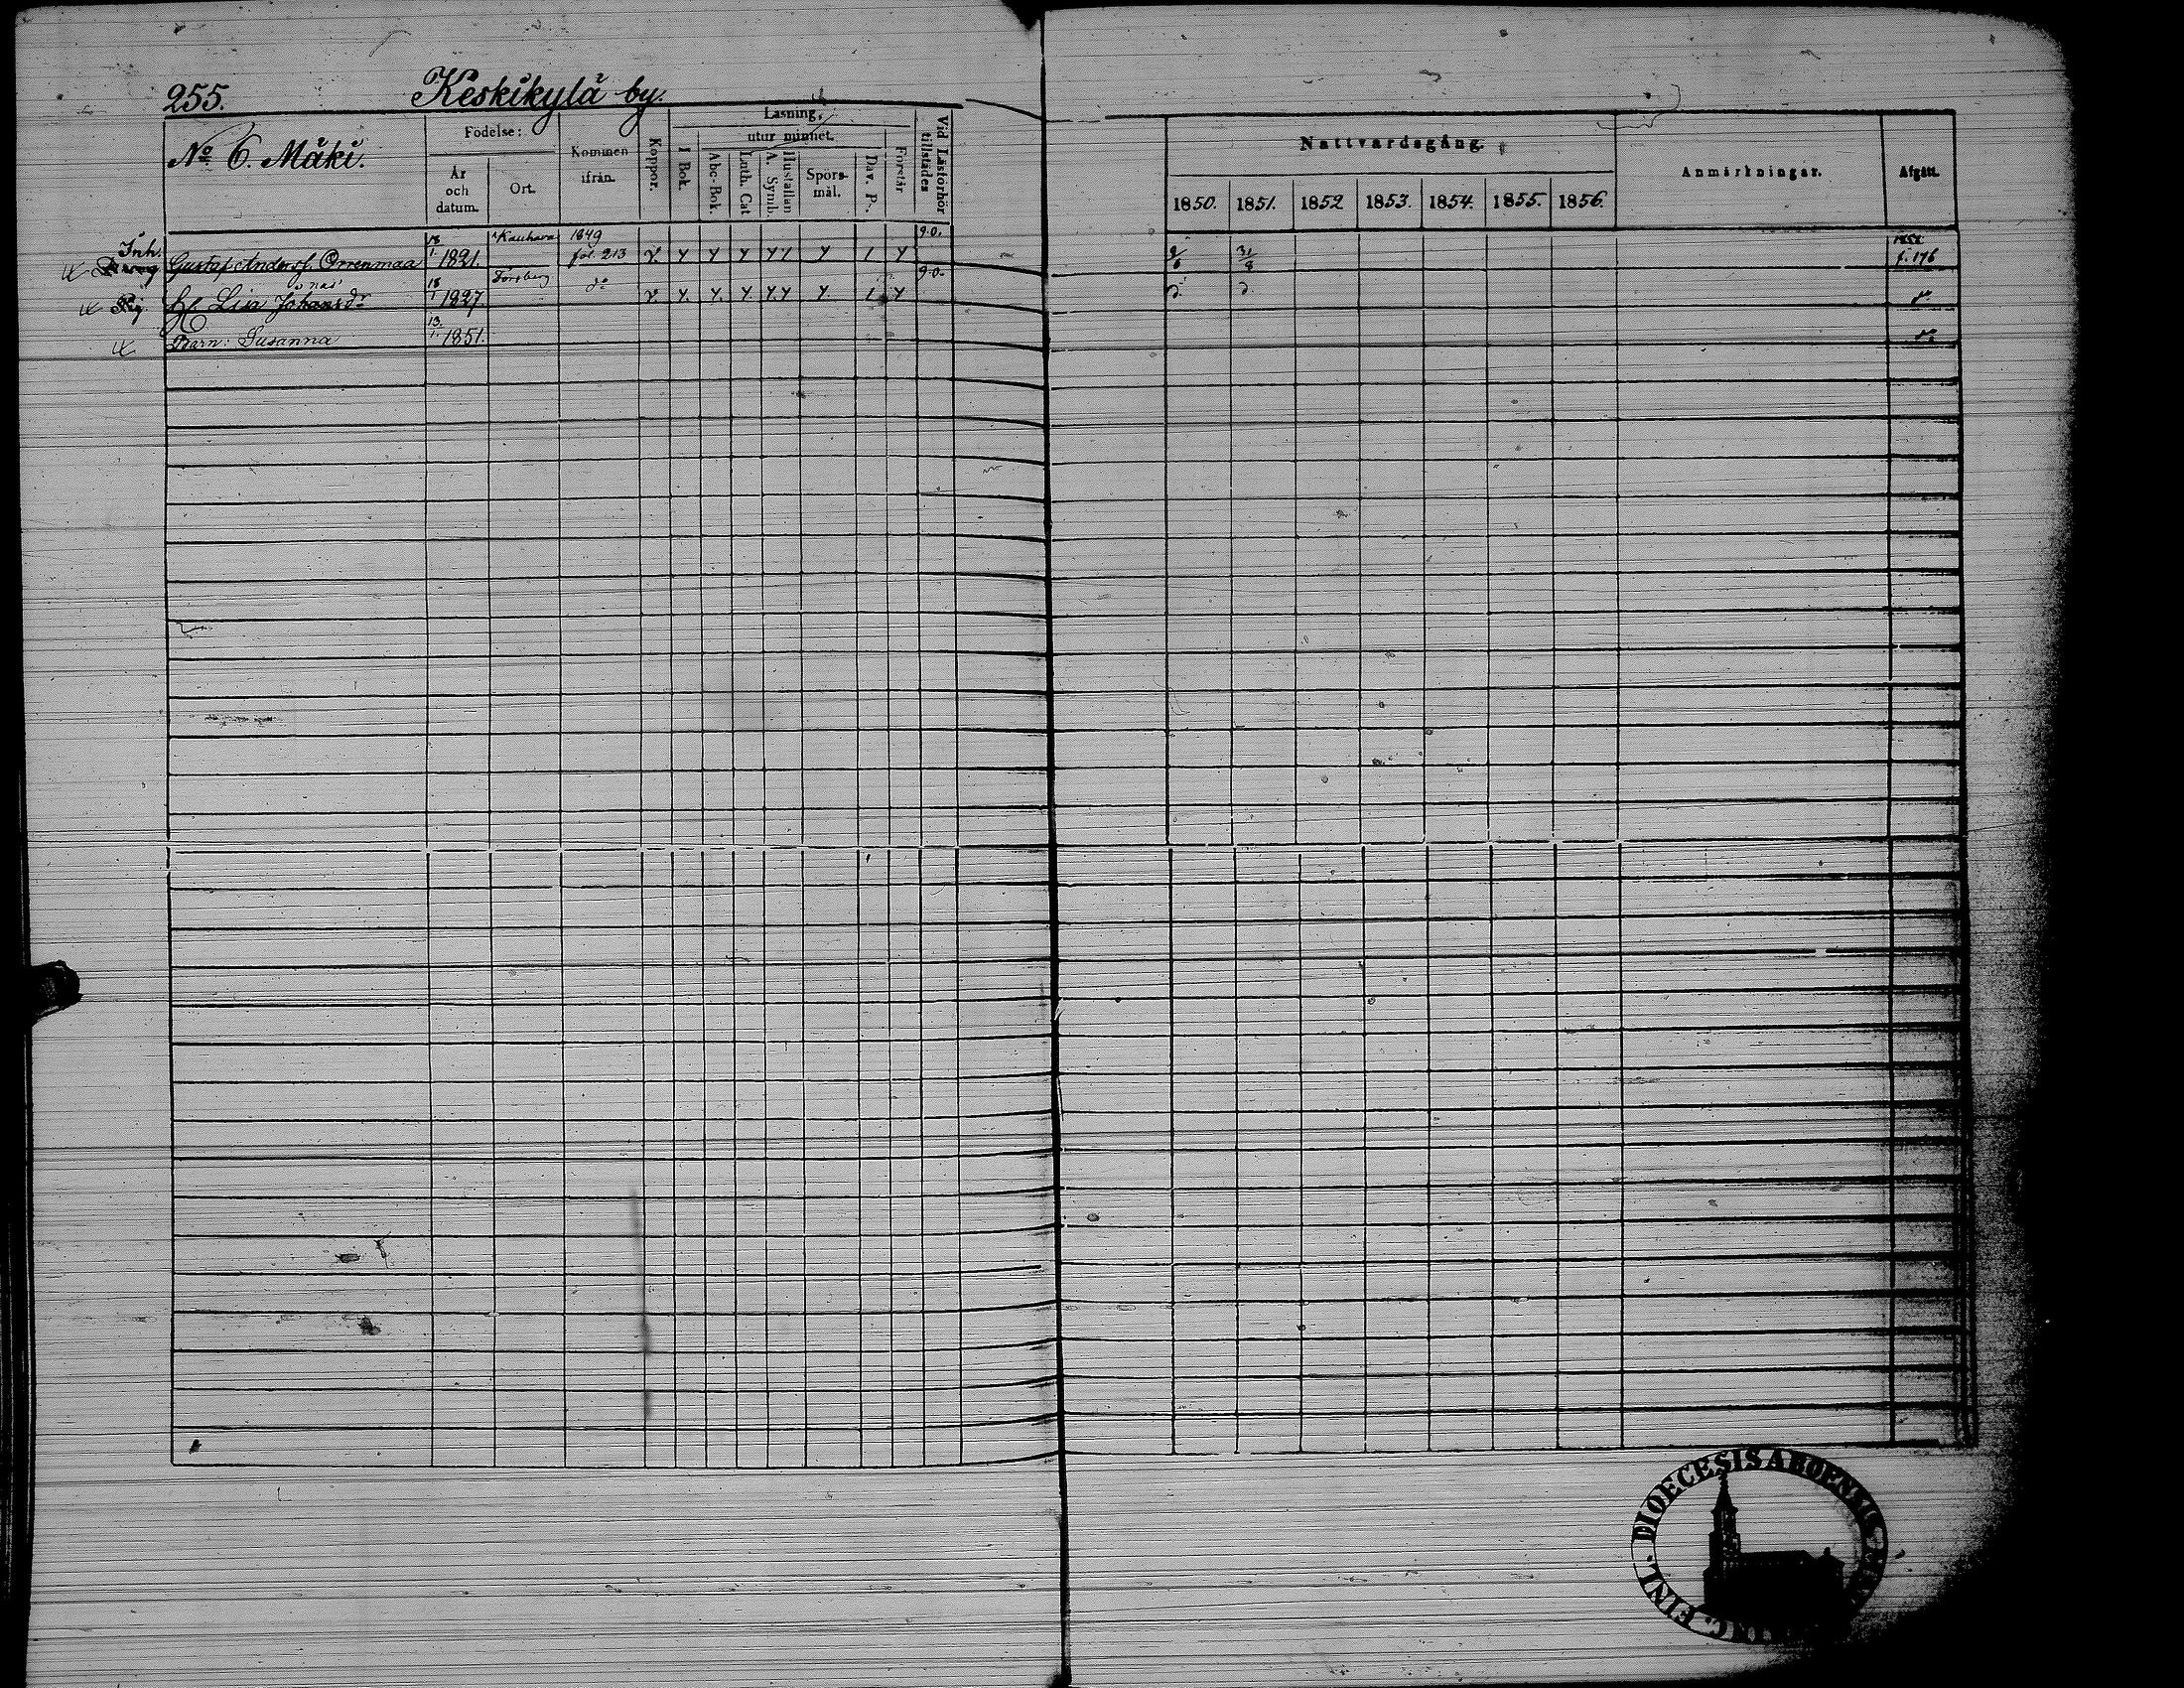 255. Keskikylä by.
No 6. Mäki.
Födelse:
År och datum.
Ort.
Kommen ifrån.
Koppor.
Läsning,
I Bok.
utur minnet.
Abc-Bok.
Luth. Cat
A. Symb.
Hustaflan
Spörsmål.
Dav. Ps.
Förstår
Vid Läsförhör tillstädes
Nattvardsgång.
1850. 1851. 1852 1853. 1854. 1855. 1856.
Anmärkningar.
Afgått.
Inh. Gustaf Andersf. Orrenmaa 18/1 1821. Kauhava 1849 fol. 213 9.0. 31/8 1852 f. 176
Pig. H. Lisa Johansdr 18/1 1827 Forsberg do 9.0.
Barn: Susanna 13/1. 1851.
DIOECESIS ABOENSIS
FINL.